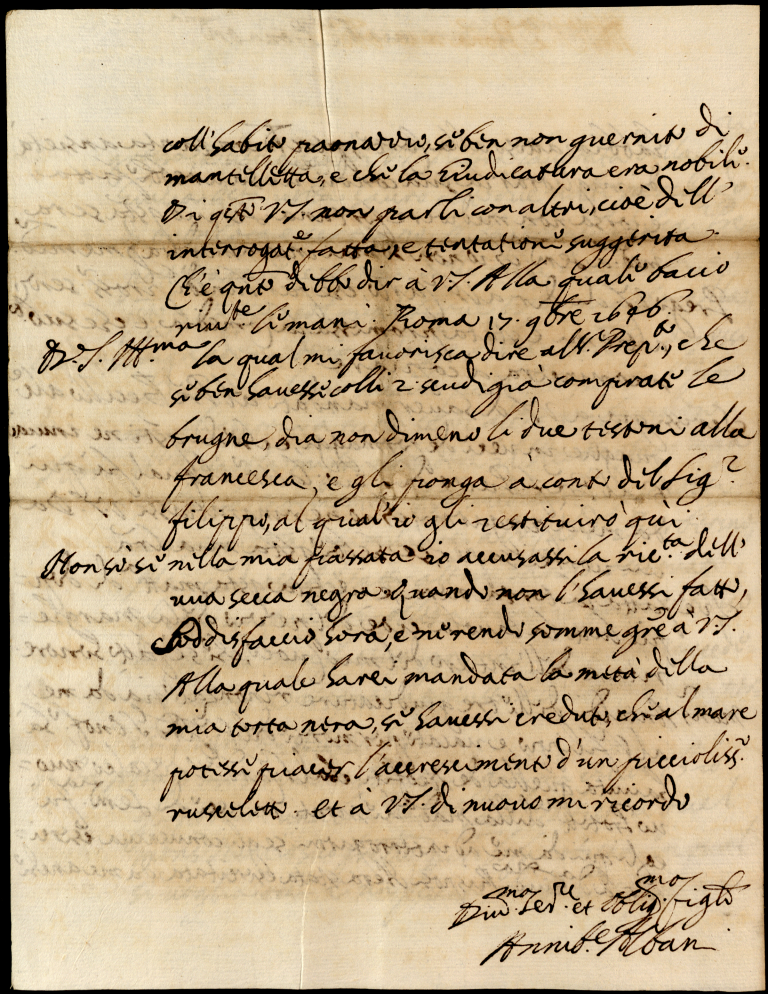 coll'habito paonazzo, se ben non guernito di
mantelletta, e che la Giudicatura era nobile.
Di qsto V.S. non parli con altri, cioè dell'
interrogate fatta, e tentatione suggerita.
Ch'è qnto debbo dir à V.S. Alla quale bacio
rivte le mani. Roma 17. gbre 1676.
la qual mi favorisca dire al Sr. Prepto, che
se ben havesse colli 2 scudi già comprate le
brugne, dia non dimeno li due testoni alla
francesca, e gli ponga à conto del Sigr.
filippo, al qual'io gli restituirò qui.
Non sò se nella mia passata io accusassi la ricta dell'
uva secca negra. Quando non l'havessi fatto,
Soddisfaccio hora, e ne rendo somme grē à V.S.
Alla quale harei mandata la metà della
mia torta nera, se havessi creduto, che al mare
potesse piacer l'accrescimento d'un piccioliss.
ruscelletto. et à V.S. di nuovo mi ricordo
Divmo. Serre. et Obligmo figlo
Annible Alban